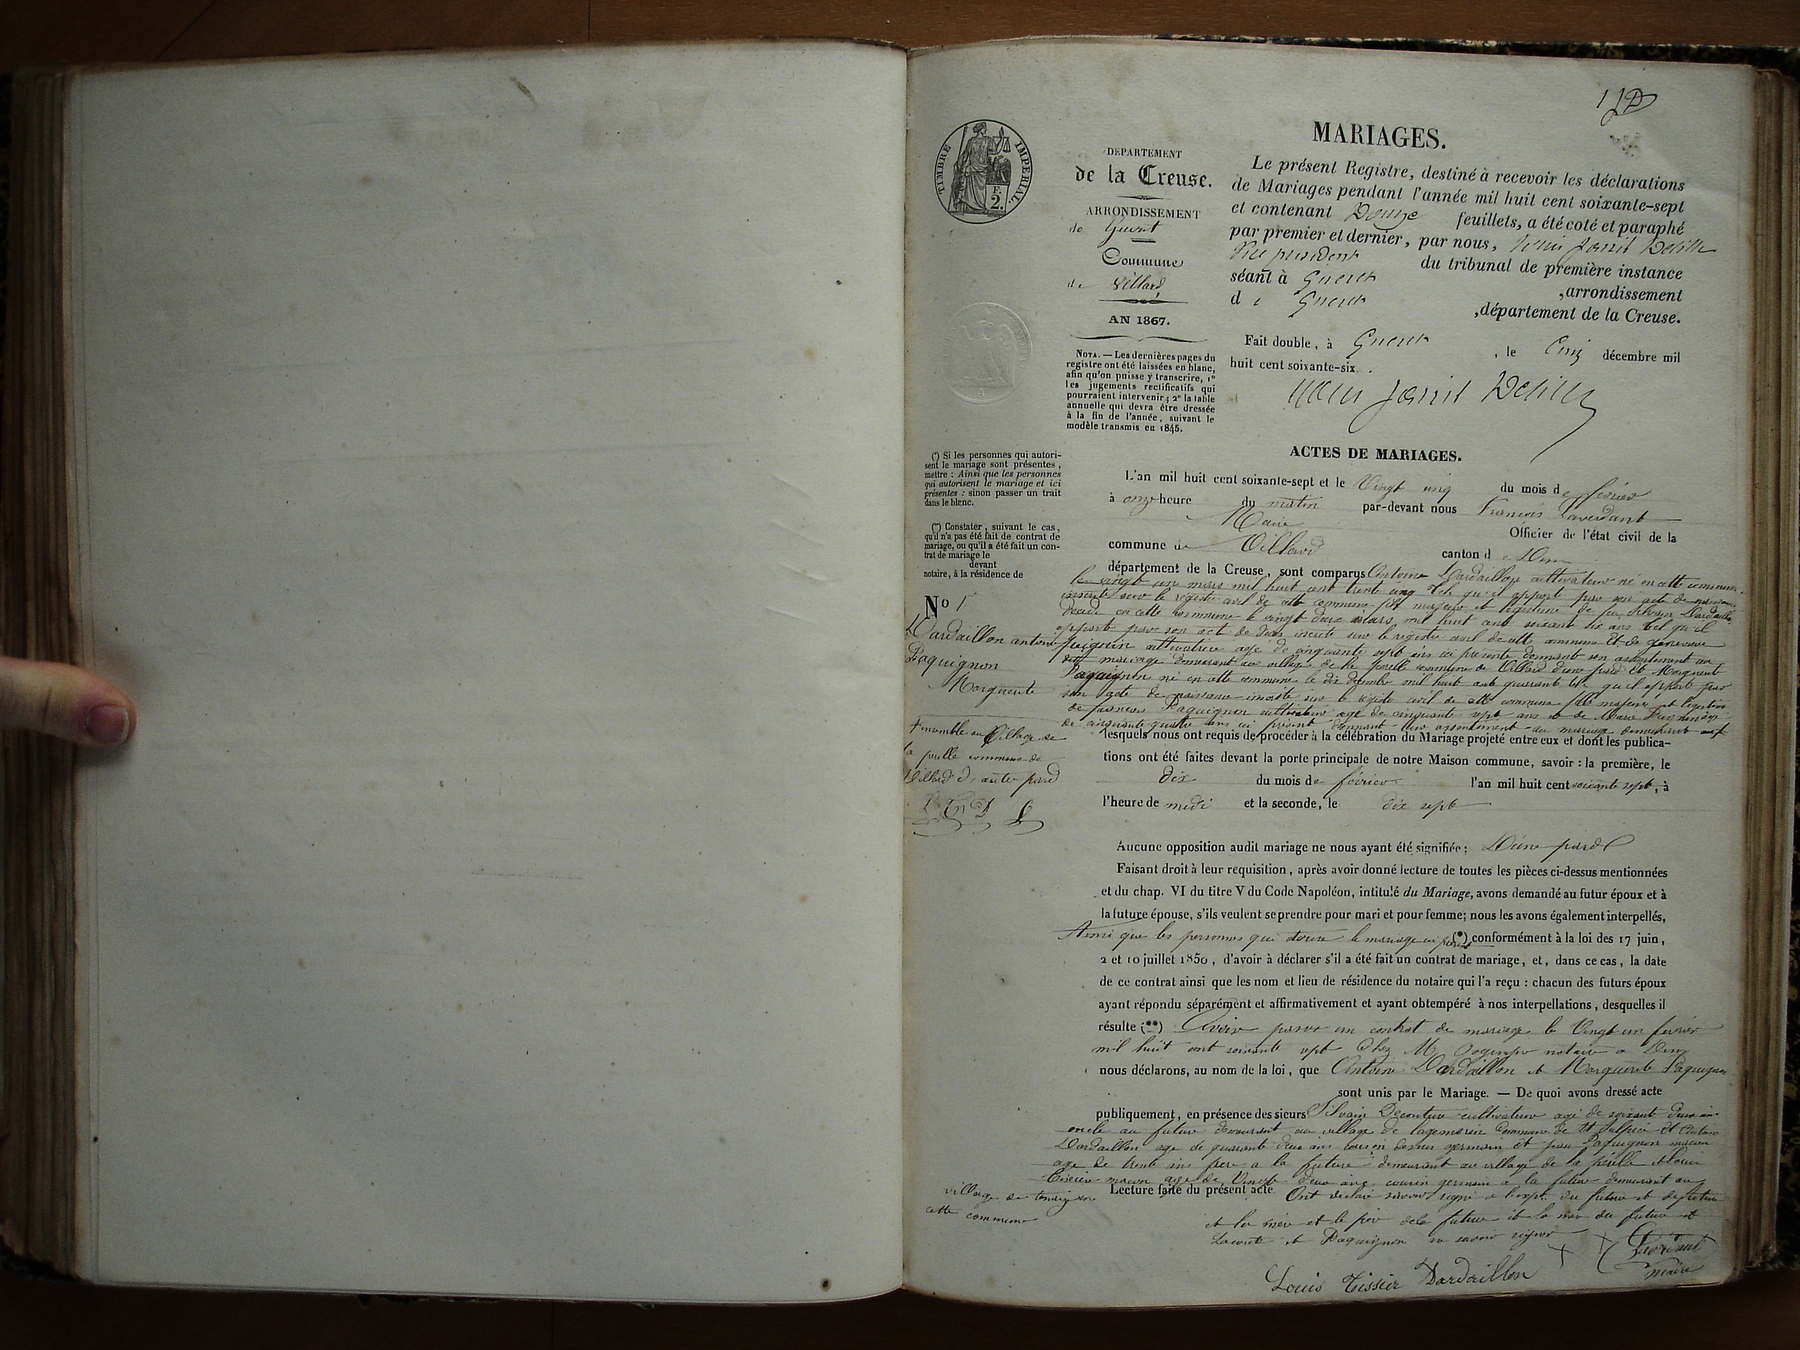 MARIAGES.
TIMBRE IMPERIAL.
F.
2.
DEPARTEMENT
de la Creuse.
ARRONDISSEMENT
de Gueret
Commune
de Villard
AN 1867.
NOTA. — Les dernières pages du
registre ont été laissées en blanc,
afin qu'on puisse y transcrire, 1°
les jugements rectificatifs qui
pourraient intervenir ; 2° la table
annuelle qui devra être dressée
à la fin de l'année, suivant le
modèle transmis en 1845.
Le présent Registre, destiné à recevoir les déclarations
de Mariages pendant l'année mil huit cent soixante-sept
et contenant Douze feuillets, a été coté et paraphé
par premier et dernier, par nous,
Vice président du tribunal de première instance
séant à Gueret ,arrondissement
de Gueret ,département de la Creuse.
Fait double, à Gueret , le Cinq décembre mil
huit cent soixante-six.
ACTES DE MARIAGES.
(*) Si les personnes qui autori-
sent le mariage sont présentes,
mettre : Ainsi que les personnes
qui autorisent le mariage et ici
présentes : sinon passer un trait
dans le blanc.
(**) Constater, suivant le cas,
qu'il n'a pas été fait de contrat de
mariage, ou qu'il a été fait un con-
trat de mariage le
devant
notaire, à la résidence de
No 1
Dardaillon antoine
Paquignon
Marguerite
L'an mil huit cent soixante-sept et le Vingt cinq du mois de février
à onze heure du matin par-devant nous François Laverdant
Maire Officier de l'état civil de la
commune de Villard canton d
département de la Creuse, sont comparus Antoine Dardaillon cultivateur né en cette commune
le vingt un mars mil huit cent trente cinq tel qu'il apport par son acte de naissance
inscrite sur le registre civil de cette commune fils majeur et légitime de feu Silvain Dardaillon
décédé en cette commune le vingt deux mars mil huit cent soixante six ans tel qu'il
apport par son acte de décès inscrite sur le registre civil de cette commune Et de génevieve
cultivatrice age de cinquante sept ans ici présente donnant son assentement au
mariage demeurant au village de la commune de Villard d'une pard Et Marguerite
Paquignon né en cette commune le dix décembre mil huit cent quarante tel qu'il apport par
son acte de naissance inscrite sur le registre civil de cette commune fille majeure et légitime
de françois Paquignon cultivateur age de cinquante sept ans et de Marie
de cinquante quatre ans ici présent donnant leur assentement au mariage demeurant
ensemble au Village de
la commune de
Villard d'autre pard
lesquels nous ont requis de procéder à la célébration du Mariage projeté entre eux et dont les publica-
tions ont été faites devant la porte principale de notre Maison commune, savoir : la première, le
dix du mois de février l'an mil huit cent soixante sept, à
l'heure de midi et la seconde, le dix sept
Aucune opposition audit mariage ne nous ayant été signifiée;
Faisant droit à leur requisition, après avoir donné lecture de toutes les pièces ci-dessus mentionnées
et du chap. VI du titre V du Code Napoléon, intitulé du Mariage, avons demandé au futur époux et à
la future épouse, s'ils veulent se prendre pour mari et pour femme; nous les avons également interpellés,
Ainsi que les personnes qui le mariage (*) conformément à la loi des 17 juin,
2 et 10 juillet 1850, d'avoir à déclarer s'il a été fait un contrat de mariage, et, dans ce cas, la date
de ce contrat ainsi que les nom et lieu de résidence du notaire qui l'a reçu : chacun des futurs époux
ayant répondu séparément et affirmativement et ayant obtempéré à nos interpellations, desquelles il
résulte (**) Avoir passer un contrat de mariage le Vingt un février
mil huit cent soixante sept Chez M notaire a
nous déclarons, au nom de la loi, que Antoine Dardaillon et Marguerite Paquignon
sont unis par le Mariage. — De quoi avons dressé acte
publiquement, en présence des sieurs Silvain Decouture cultivateur age de soixante deux ans
oncle au futur demeurant au village de commune de St Sulpice Et Antoine
Dardaillon age de quarante deux ans cousin germain Et Paquignon maçon
age de trente ans frere a la future demeurant au village de la et Louis
Tissier maçon age de Vingt deux ans, cousin germain a la future demeurant au
village de
cette commune
Lecture faite du présent acte Ont déclaré savoir signer a l'exept. du futur et
et la mere et le père de la future et la mere du futur et
et Paquignon savoir signer
Laverdant
maire
Louis Tissier Dardaillon